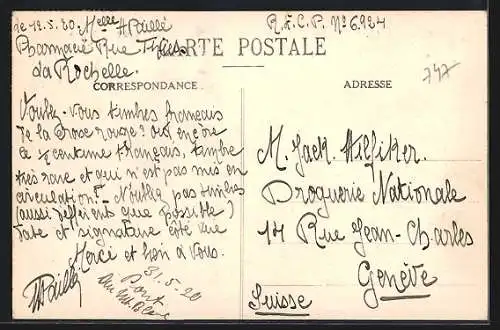 le 12.5.20 Melle H Paillé
R.E.C.P. No 6.924
Pharmacie Rue Thiers
CARTE POSTALE
La Rochelle.
747
CORRESPONDANCE
ADRESSE
Voulez-vous timbres français
de la Croix rouge? ou encore
centime français, timbre
très rare et qui n'est pas mis en
circulation? N'oubliez pas timbres
(aussi différents que possible)
date et signature côté vue
Merci et bien à vous.
31.5.20
Pont
M. Jack Hilfiker.
Droguerie Nationale
17 Rue Jean-Charles
Genève
Suisse